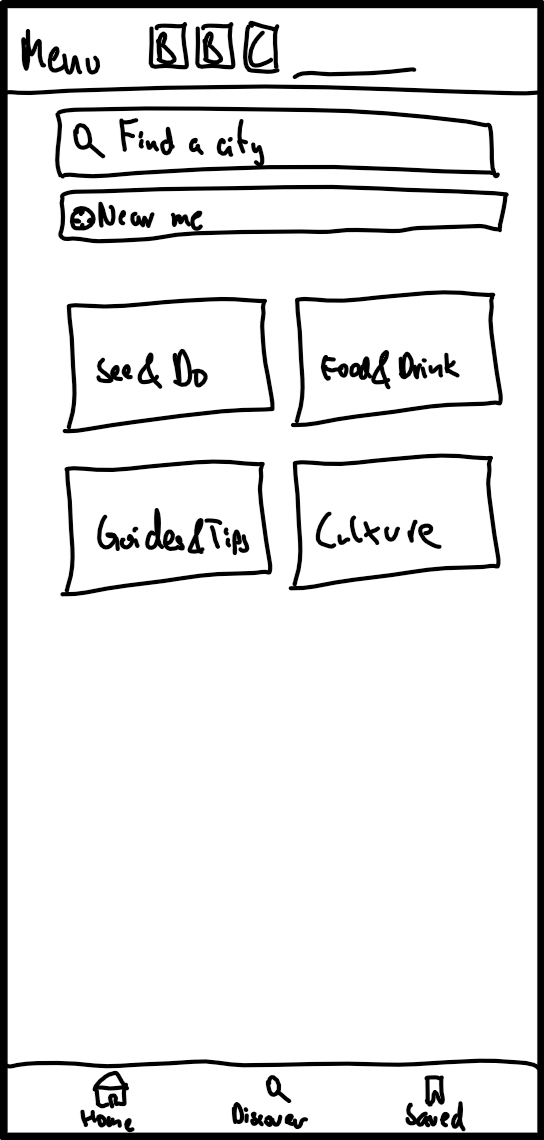 Menu BBC
Find a city
Near me
See & Do Food & Drink
Guides & Tips Culture
Home Discover Saved